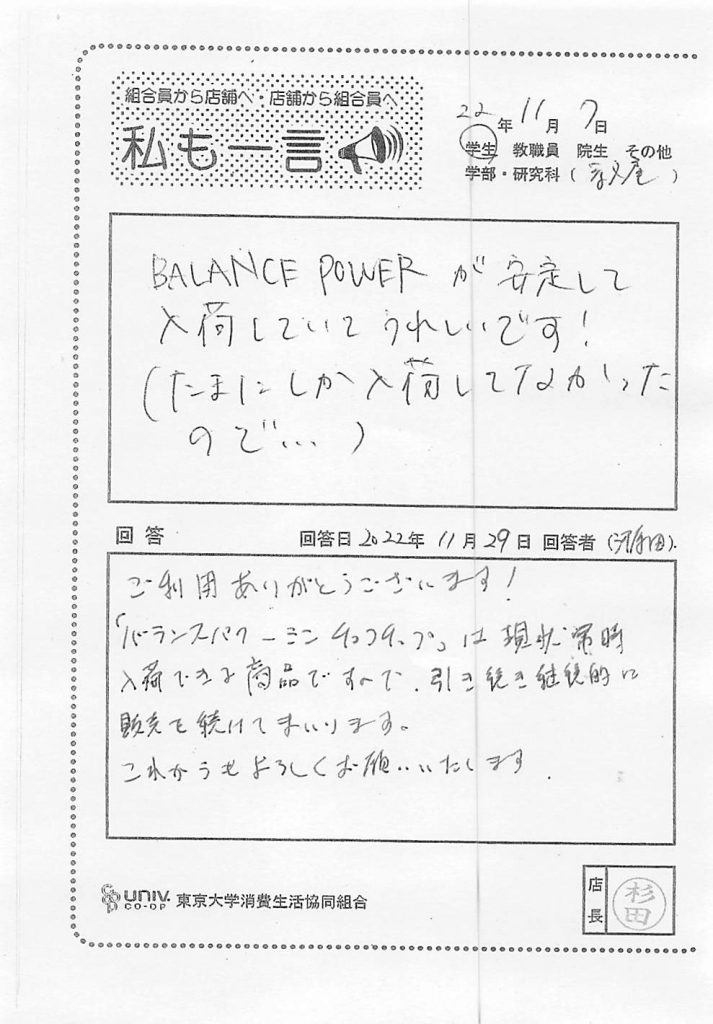 組合員から店舗へ・店舗から組合員へ
私も一言
22年11月7日
学生 教職員 院生 その他
学部・研究科( )
BALANCE POWER が安定して
入荷していてうれしいです!
(たまにしか入荷してなかった
ので… )
回答 回答日 2022年 11月29日 回答者 (河原田).
ご利用ありがとうございます!
「バランスパワーミンチョコチップ」は現状常時
入荷できる商品ですので、引き続き継続的に
販売を続けてまいります。
これからもよろしくお願いいたします.
UNIV. CO-OP 東京大学消費生活協同組合
店長 杉田